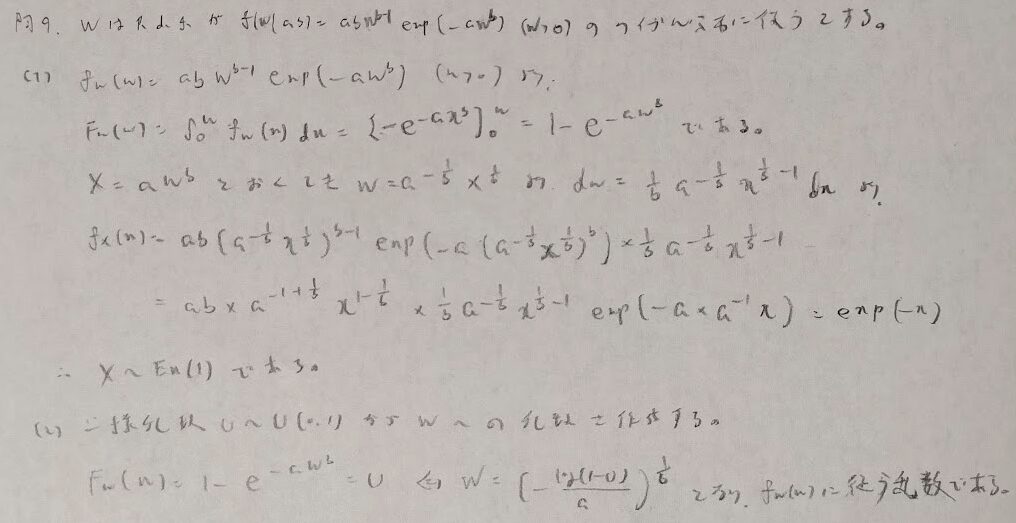 問9. Wは密度が f(w|a,b)= abw^{b-1} exp(-aw^b) (w>0) のワイブル分布に従うとする。
(1) f_w(w)= ab w^{b-1} exp(-aw^b) (w>0) より、
F_w(w)= ∫_0^w f_w(x) dx = [-e^{-ax^b}]_0^w = 1-e^{-aw^b} である。
X = aw^b とおくとき w=a^{-1/b} x^{1/b} より dw= 1/b a^{-1/b} x^{1/b -1} dx より、
f_x(x)= ab(a^{-1/b} x^{1/b})^{b-1} exp(-a(a^{-1/b} x^{1/b})^b) × 1/b a^{-1/b} x^{1/b -1}
= ab × a^{-1+1/b} x^{1-1/b} × 1/b a^{-1/b} x^{1/b -1} exp(-a×a^{-1}x) = exp(-x)
∴ X ~ Ex(1) である。
(2) 一様乱数 U~U(0,1) から W への乱数を作成する。
F_w(w)= 1-e^{-aw^b} = U ⇔ W = (- log(1-U)/a)^{1/b} となり、f_w(w)に従う乱数である。